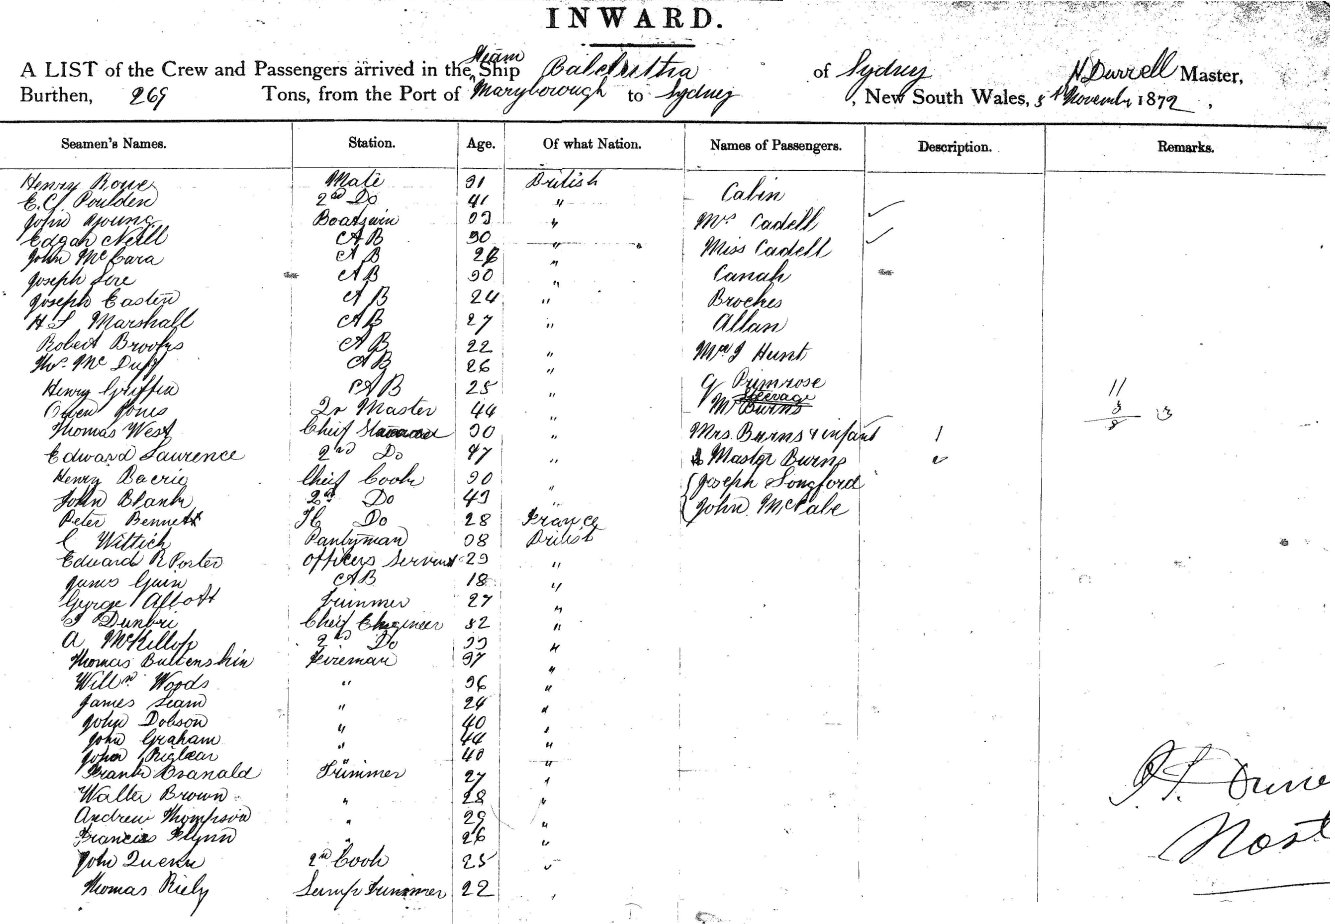 INWARD.
A LIST of the Crew and Passengers arrived in the Steam Ship Balclutha of Sydney H Durrell Master,
Burthen, 269 Tons, from the Port of Maryborough to Sydney, New South Wales, November 1872.
Seamen's Names. Station. Age. Of what Nation. Names of Passengers. Description. Remarks.
Henry Rowe Mate 31 British
Cabin
E. C. Poulden 2nd Do 41 "
John Young Boatswain 33 " Mrs Cadell
Edgar Neill AB 30 " Miss Cadell
John McCara AB 26 "
Joseph AB 30 " Canah
Joseph Easten AB 24 " Broches
H S Marshall AB 27 " Allan
Robert Brooks AB 22 " J Hunt
Thos. McDuff AB 26 "
Henry Griffin AB 25 " G Primrose 11
Steerage
Owen Jones Qr Master 44 " Mr Burns 3 3
Thomas West Chief 30 " Mrs. Burns & infant 1 8
Edward Laurence 2nd Do 47 " Master Burns
Henry Chief Cook 30 " Joseph Songford
John Blank 2nd Do 43 " John McCabe
Peter Bennett Do 28 France
C Wittich Pantryman 38 British
Edward R Porter Officers Servant 23 "
James AB 18 "
George Abbott Trimmer 27 "
Chief Engineer 52 "
A McKillop 2nd Do 33 "
Thomas Fireman 37 "
Willm Woods " 36 "
James " 24 "
John Dobson " 40 "
John Graham " 44 "
John " 40 "
Frank Trimmer 27 "
Walter Brown " 28 "
Andrew Thompson " 29 "
Francis Flynn " 26 "
John 2nd Cook 25 "
Thomas Riely Trimmer 22 "